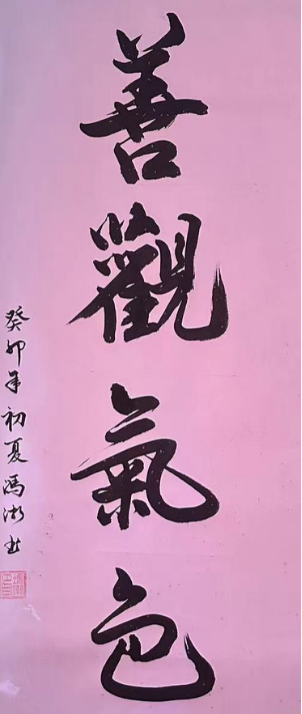 善觀氣色
癸卯年初夏馮